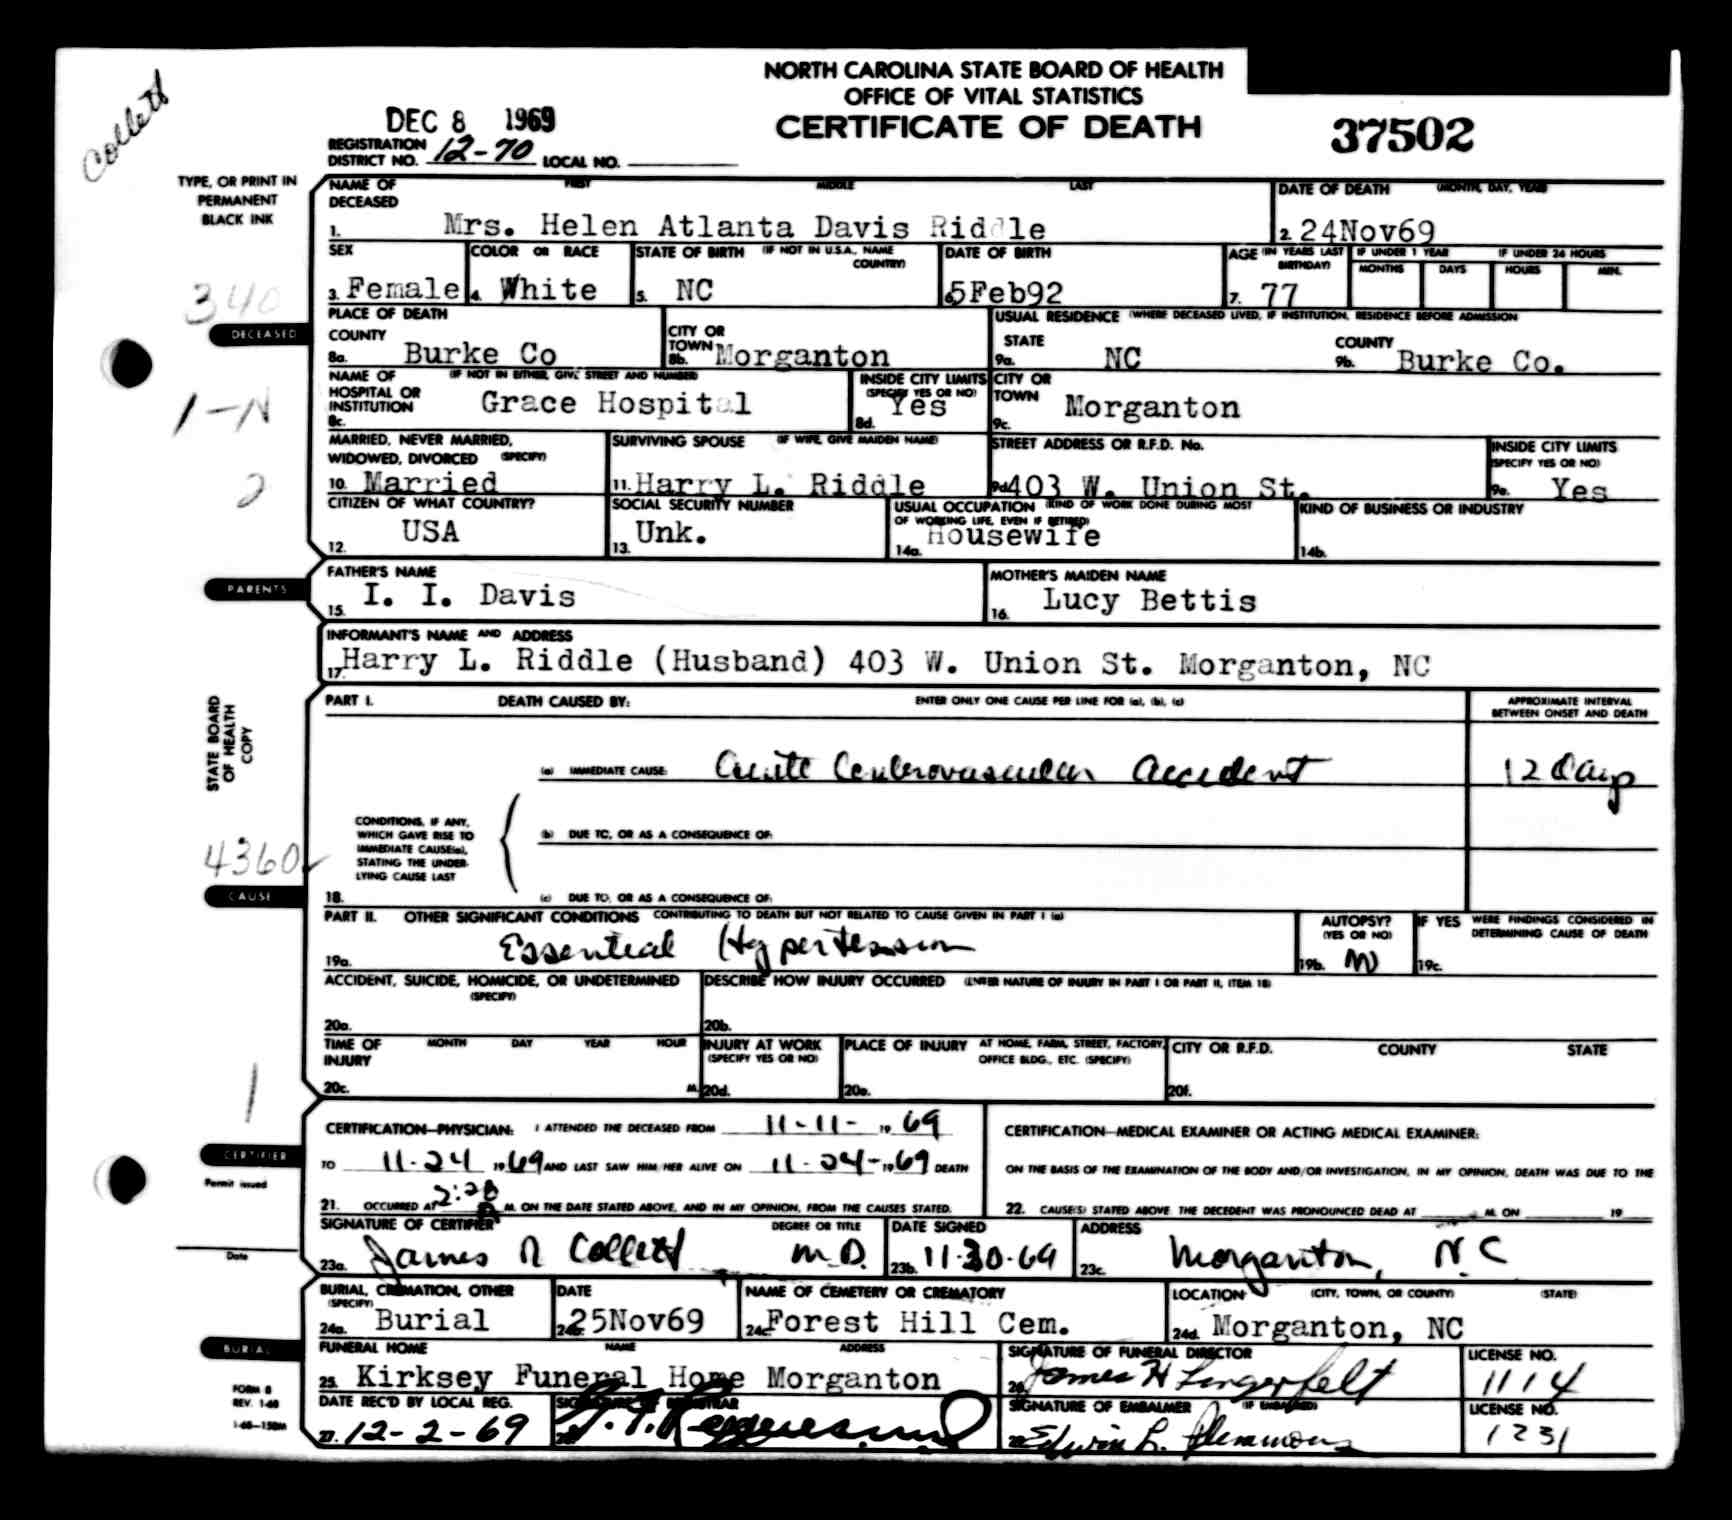 Collett
NORTH CAROLINA STATE BOARD OF HEALTH
OFFICE OF VITAL STATISTICS
CERTIFICATE OF DEATH
DEC 8 1969
37502
REGISTRATION DISTRICT NO. 12-70 LOCAL NO.
TYPE, OR PRINT IN
PERMANENT
BLACK INK
NAME OF DECEASED FIRST MIDDLE LAST DATE OF DEATH (MONTH, DAY, YEAR)
1. Mrs. Helen Atlanta Davis Riddle 2. 24Nov69
SEX COLOR OR RACE STATE OF BIRTH (IF NOT IN U.S.A., NAME COUNTRY) DATE OF BIRTH AGE (IN YEARS LAST BIRTHDAY) IF UNDER 1 YEAR IF UNDER 24 HOURS
MONTHS DAYS HOURS MIN.
3. Female 4. White 5. NC 6. 5Feb92 7. 77
340
DECEASED
PLACE OF DEATH USUAL RESIDENCE (WHERE DECEASED LIVED, IF INSTITUTION, RESIDENCE BEFORE ADMISSION
COUNTY CITY OR TOWN STATE COUNTY
8a. Burke Co 8b. Morganton 9a. NC 9b. Burke Co.
NAME OF HOSPITAL OR INSTITUTION (IF NOT IN EITHER, GIVE STREET AND NUMBER) INSIDE CITY LIMITS (SPECIFY YES OR NO) CITY OR TOWN
8c. Grace Hospital 8d. Yes 9c. Morganton
1-N
MARRIED, NEVER MARRIED, WIDOWED, DIVORCED (SPECIFY) SURVIVING SPOUSE (IF WIFE, GIVE MAIDEN NAME) STREET ADDRESS OR R.F.D. No. INSIDE CITY LIMITS (SPECIFY YES OR NO)
10. Married 11. Harry L. Riddle 9d. 403 W. Union St. 9e. Yes
2
CITIZEN OF WHAT COUNTRY? SOCIAL SECURITY NUMBER USUAL OCCUPATION (KIND OF WORK DONE DURING MOST OF WORKING LIFE, EVEN IF RETIRED) KIND OF BUSINESS OR INDUSTRY
12. USA 13. Unk. 14a. Housewife 14b.
PARENTS
FATHER'S NAME MOTHER'S MAIDEN NAME
15. I. I. Davis 16. Lucy Bettis
INFORMANT'S NAME AND ADDRESS
17. Harry L. Riddle (Husband) 403 W. Union St. Morganton, NC
STATE BOARD
OF HEALTH
COPY
PART I. DEATH CAUSED BY: ENTER ONLY ONE CAUSE PER LINE FOR (a), (b), (c) APPROXIMATE INTERVAL BETWEEN ONSET AND DEATH
(a) IMMEDIATE CAUSE: Acute Cerebrovascular Accident 12 Days
CONDITIONS, IF ANY,
WHICH GAVE RISE TO
IMMEDIATE CAUSE(a),
STATING THE UNDER-
LYING CAUSE LAST
(b) DUE TO, OR AS A CONSEQUENCE OF:
4360
CAUSE
18. (c) DUE TO, OR AS A CONSEQUENCE OF:
PART II. OTHER SIGNIFICANT CONDITIONS CONTRIBUTING TO DEATH BUT NOT RELATED TO CAUSE GIVEN IN PART I (a) AUTOPSY? (YES OR NO) IF YES WERE FINDINGS CONSIDERED IN DETERMINING CAUSE OF DEATH
19a. Essential Hypertension 19b. No 19c.
ACCIDENT, SUICIDE, HOMICIDE, OR UNDETERMINED (SPECIFY) DESCRIBE HOW INJURY OCCURRED (ENTER NATURE OF INJURY IN PART I OR PART II, ITEM 18)
20a. 20b.
TIME OF INJURY MONTH DAY YEAR HOUR INJURY AT WORK (SPECIFY YES OR NO) PLACE OF INJURY AT HOME, FARM, STREET, FACTORY, OFFICE BLDG., ETC. (SPECIFY) CITY OR R.F.D. COUNTY STATE
20c. M. 20d. 20e. 20f.
1
CERTIFIER
Permit issued
Date
CERTIFICATION—PHYSICIAN: I ATTENDED THE DECEASED FROM 11-11- 19 69
TO 11-24 19 69 AND LAST SAW HIM/HER ALIVE ON 11-24- 19 69 DEATH
21. OCCURRED AT 2:28 P M. ON THE DATE STATED ABOVE, AND IN MY OPINION, FROM THE CAUSES STATED.
CERTIFICATION—MEDICAL EXAMINER OR ACTING MEDICAL EXAMINER:
ON THE BASIS OF THE EXAMINATION OF THE BODY AND/OR INVESTIGATION, IN MY OPINION, DEATH WAS DUE TO THE
22. CAUSE(S) STATED ABOVE. THE DECEDENT WAS PRONOUNCED DEAD AT M. ON 19
SIGNATURE OF CERTIFIER DEGREE OR TITLE DATE SIGNED ADDRESS
23a. James N Collett M.D. 23b. 11-30-69 23c. Morganton, N.C
BURIAL, CREMATION, OTHER (SPECIFY) DATE NAME OF CEMETERY OR CREMATORY LOCATION (CITY, TOWN, OR COUNTY) (STATE)
24a. Burial 24b. 25Nov69 24c. Forest Hill Cem. 24d. Morganton, NC
BURIAL
FUNERAL HOME NAME ADDRESS SIGNATURE OF FUNERAL DIRECTOR LICENSE NO.
25. Kirksey Funeral Home Morganton 26. James H Lingerfelt 1114
FORM 8
REV. 1-68
1-68-150M
DATE REC'D BY LOCAL REG. SIGNATURE OF REGISTRAR SIGNATURE OF EMBALMER (IF EMBALMED) LICENSE NO.
27. 12-2-69 28. 29. Edwin L. Plemmons 1231